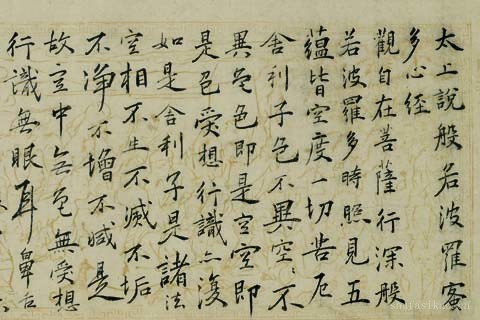 太上說般若波羅蜜
多心經
觀自在菩薩行深般
若波羅多時照見五
蘊皆空度一切苦厄
舍利子色不異空〻不
異色色即是空空即
是色受想行識亦復
如是舍利子是諸法
空相不生不滅不垢
不淨不增不減是
故空中无色無受想
行識無眼耳鼻舌